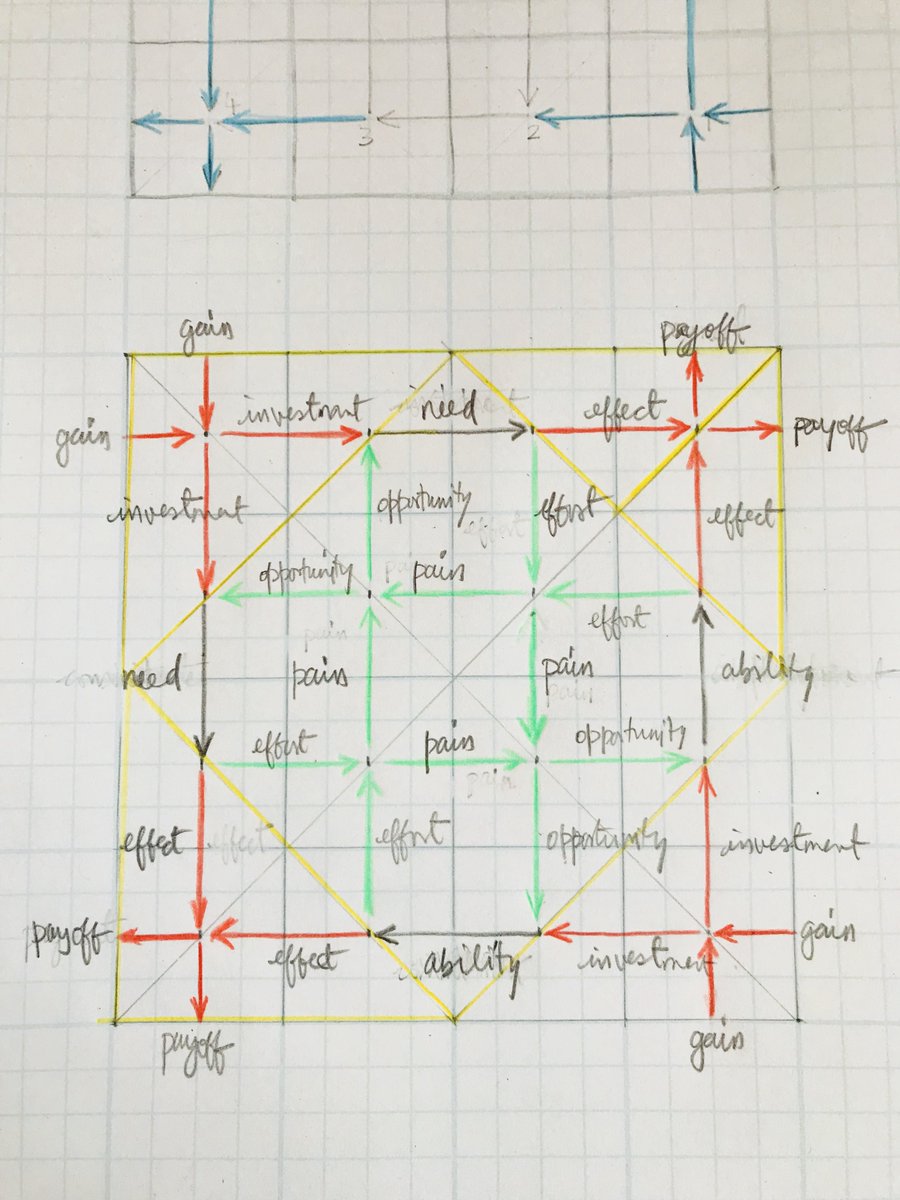 4
3
2
gain
payoff
gain
investment
need
effect
payoff
investment
opportunity
effort
effect
opportunity
pain
effort
need
pain
pain
ability
effort
pain
opportunity
effect
effort
opportunity
investment
payoff
effect
ability
investment
gain
payoff
gain